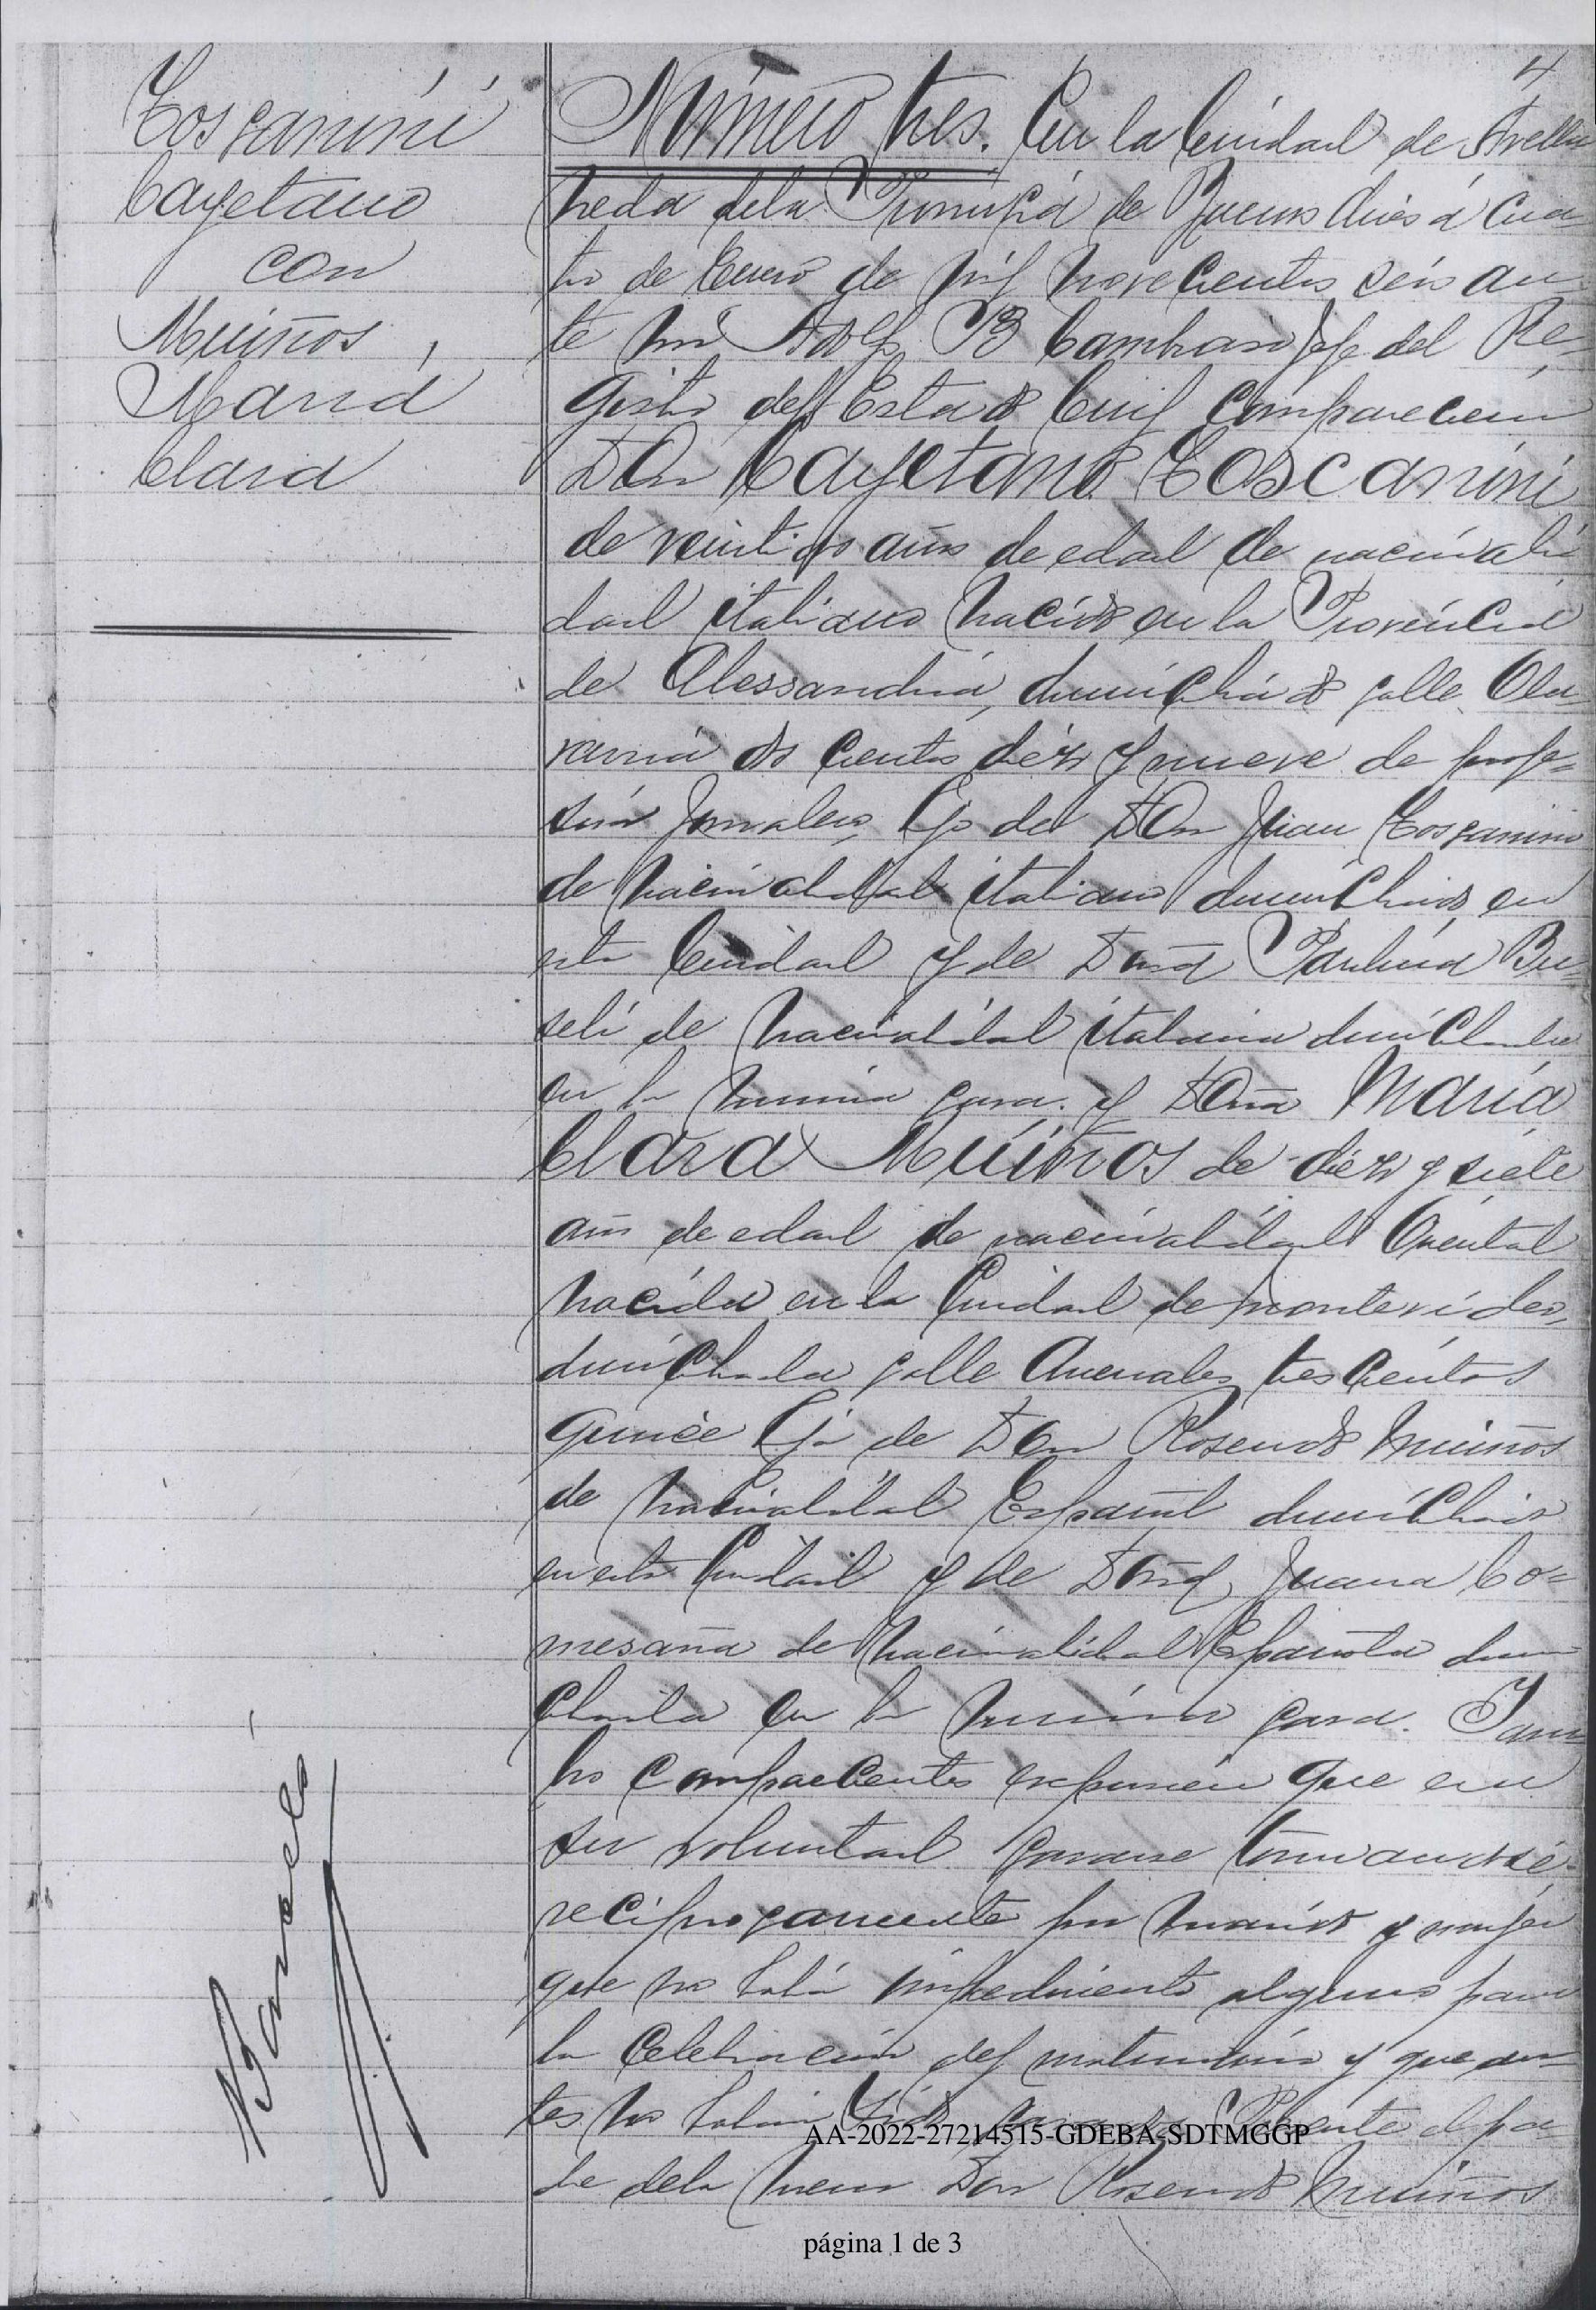 4
Toscanini
Cayetano
con
Muiños
María
Clara
Número tres. En la Ciudad de Avella
neda de la Provincia de Buenos Aires á cua
tro de Enero de mil novecientos seis an
te mi Adolfo B Cambrasi Jefe del Re
gistro del Estado Civil comparecen
Don Cayetano Toscanini
de veintidos años de edad de nacionali
dad italiano nacido en la Provincia
de Alessandria, domiciliado calle Ola
varria dos cientos diez y nueve de profe=
sión jornalero, hijo de Don Juan Toscanini
de nacionalidad italiano domiciliado en
esta Ciudad y de Doña Paulina Bu
seli de nacionalidad italiana domiciliada
en la misma casa. y Doña María
Clara Muiños de diez y siete
años de edad de nacionalidad Oriental
nacida en la Ciudad de Montevideo,
domiciliada calle Arenales trescientos
quince hija de Don Rosendo Muiños
de nacionalidad Español domiciliado
en esta Ciudad y de Doña Juana Co=
mesaña de nacionalidad Española domi
ciliada en la misma casa.
los comparecientes expusieron que era
su voluntad casarse tomandose
reciprocamente por marido y mujer
que no había impedimento alguno para
la celebración del matrimonio y que an
tes no habian sido casados Presente el pa
dre de la menor Don Rosendo Muiños
Barceló
AA-2022-27214515-GDEBA-SDTMGGP
página 1 de 3